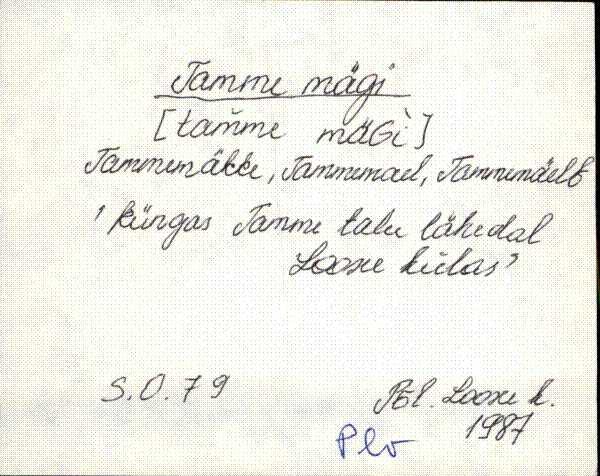 Tamme mägi
[tam̆me mäGì]
Tammemäkke, Tammemael, Tammemäelt
‛küngas Tamme talu lähedal
Loosu külas’
S.O. 79
Põl. Loosu k.
1987
Plv